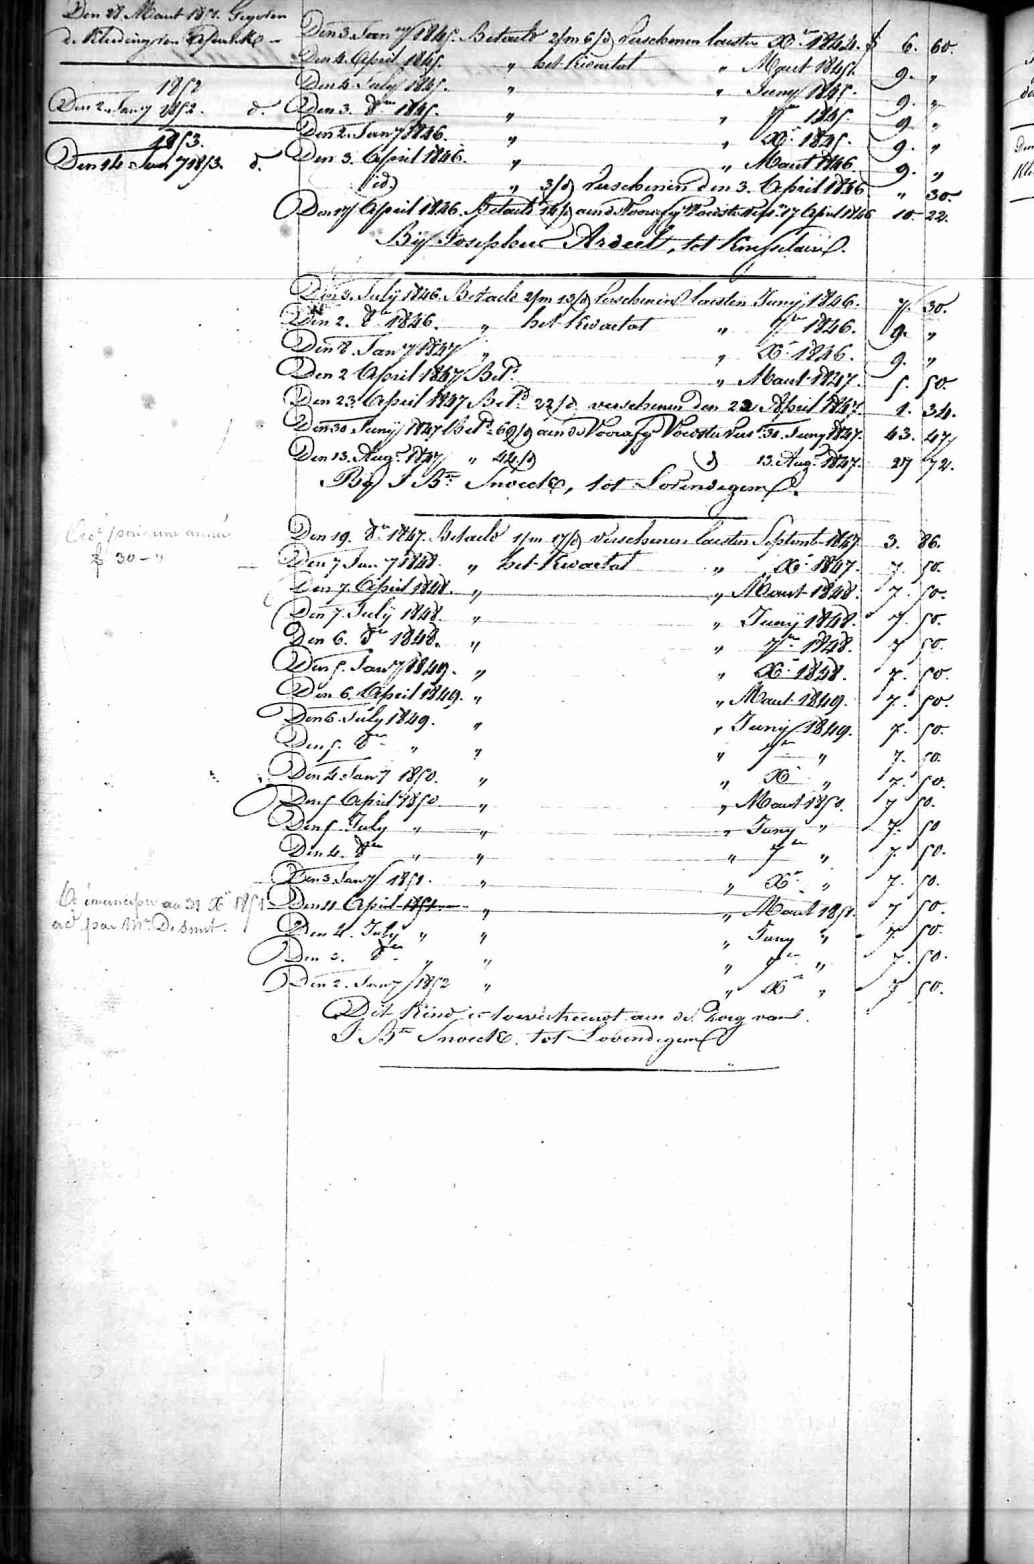 Den 28 Maart 1851. Gegeven
de Kleeding
1852
Den 2 Jany 1852. d.
1853.
Den 14 Jany 1853. d.
Den 3 Jany 1845. Betaelt 2/m 6/d verschenen laesten Xr 1844. 6. 60.
Den 4 April 1845. " het Kwartal " Maart 1845. 9. "
Den 4 July 1845. " " Juny 1845. 9. "
Den 3. 8er 1845. " " 7er 1845. 9. "
Den 2. Jany 1846. " " Xr 1845. 9. "
Den 3. April 1846. " " Maart 1846. 9. "
(id) " 3/d verschenen den 3. April 1846 " 30.
Den 17 April 1846. Betaelt 14/d aen de Voorige Voedster 17 April 1846 10. 22.
By Josephus Ardeel, tot Knesselaire.
Den 3. July 1846. Betaelt 2/m 13/d verschenen laesten Juny 1846. 7. 30.
Den 2. 8er 1846. " het Kwartal " 7er 1846. 9. "
Den 8. Jany 1847 " " Xr 1846. 9. "
Den 2 April 1847 Betd " Maart 1847. 5. 50.
Den 23 April 1847 Betd 22/d verschenen den 22 April 1847. 1. 34.
Den 30 Juny 1847 Betd 69/d aen de Voorige Voedster 30 Juny 1847. 43. 47
Den 13. Augt 1847 " 44/d d 13. Augt 1847. 27 72.
By J Bte Snoeck, tot Lovendegem.
Den 19. 8er 1847. Betaelt 1/m 17/d verschenen laesten Septemb 1847 3. 86.
pour une année
30 - "
Den 7 Jany 1848. " het Kwartal " Xr 1847. 7. 50.
Den 7. April 1848. " " Maart 1848. 7. 50.
Den 7. July 1848. " " Juny 1848. 7. 50.
Den 6. 8er 1848. " " 7er 1848. 7 50.
Den 5. Jany 1849. " " Xr 1848. 7. 50.
Den 6. April 1849. " " Maart 1849. 7. 50.
Den 6. July 1849. " " Juny 1849. 7. 50.
Den 5. 8er " " " 7er " 7. 50.
Den 4 Jany 1850. " " Xr " 7. 50.
Den 5 April 1850 " " Maart 1850. 7 50.
Den 5 July " " " Juny " 7. 50
Den 4. 8er " " " 7er " 7. 50.
Den 3 Jany 1851. " " Xr " 7. 50.
émancipé au 31 Xr 1851
par Mr Desmet.
Den 4 April 1851. " " Maart 1851. 7 50.
Den 4. July " " " Juny " 7. 50.
Den 3. 8er " " " 7er " 7. 50.
Den 2. Jany 1852 " " Xr " 7 50.
Dit Kind is toevertrouwt aen de Zorg van
J Bte Snoeck. tot Lovendegem